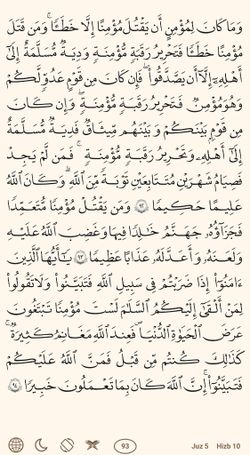 وَمَا كَانَ لِمُؤْمِنٍ أَن يَقْتُلَ مُؤْمِنًا إِلَّا خَطَـًٔا ۚ وَمَن قَتَلَ
مُؤْمِنًا خَطَـًٔا فَتَحْرِيرُ رَقَبَةٍ مُّؤْمِنَةٍ وَدِيَةٌ مُّسَلَّمَةٌ إِلَىٰٓ
أَهْلِهِۦٓ إِلَّآ أَن يَصَّدَّقُوا۟ ۚ فَإِن كَانَ مِن قَوْمٍ عَدُوٍّ لَّكُمْ
وَهُوَ مُؤْمِنٌ فَتَحْرِيرُ رَقَبَةٍ مُّؤْمِنَةٍ ۖ وَإِن كَانَ
مِن قَوْمٍۭ بَيْنَكُمْ وَبَيْنَهُم مِّيثَـٰقٌ فَدِيَةٌ مُّسَلَّمَةٌ
إِلَىٰٓ أَهْلِهِۦ وَتَحْرِيرُ رَقَبَةٍ مُّؤْمِنَةٍ ۖ فَمَن لَّمْ يَجِدْ
فَصِيَامُ شَهْرَيْنِ مُتَتَابِعَيْنِ تَوْبَةً مِّنَ ٱللَّهِ ۗ وَكَانَ ٱللَّهُ
عَلِيمًا حَكِيمًا ٩٢ وَمَن يَقْتُلْ مُؤْمِنًا مُّتَعَمِّدًا
فَجَزَآؤُهُۥ جَهَنَّمُ خَـٰلِدًا فِيهَا وَغَضِبَ ٱللَّهُ عَلَيْهِ
وَلَعَنَهُۥ وَأَعَدَّ لَهُۥ عَذَابًا عَظِيمًا ٩٣ يَـٰٓأَيُّهَا ٱلَّذِينَ
ءَامَنُوٓا۟ إِذَا ضَرَبْتُمْ فِى سَبِيلِ ٱللَّهِ فَتَبَيَّنُوا۟ وَلَا تَقُولُوا۟
لِمَنْ أَلْقَىٰٓ إِلَيْكُمُ ٱلسَّلَـٰمَ لَسْتَ مُؤْمِنًا تَبْتَغُونَ
عَرَضَ ٱلْحَيَوٰةِ ٱلدُّنْيَا فَعِندَ ٱللَّهِ مَغَانِمُ كَثِيرَةٌ ۚ
كَذَٰلِكَ كُنتُم مِّن قَبْلُ فَمَنَّ ٱللَّهُ عَلَيْكُمْ
فَتَبَيَّنُوٓا۟ ۚ إِنَّ ٱللَّهَ كَانَ بِمَا تَعْمَلُونَ خَبِيرًا ٩٤
93 Juz 5 Hizb 10